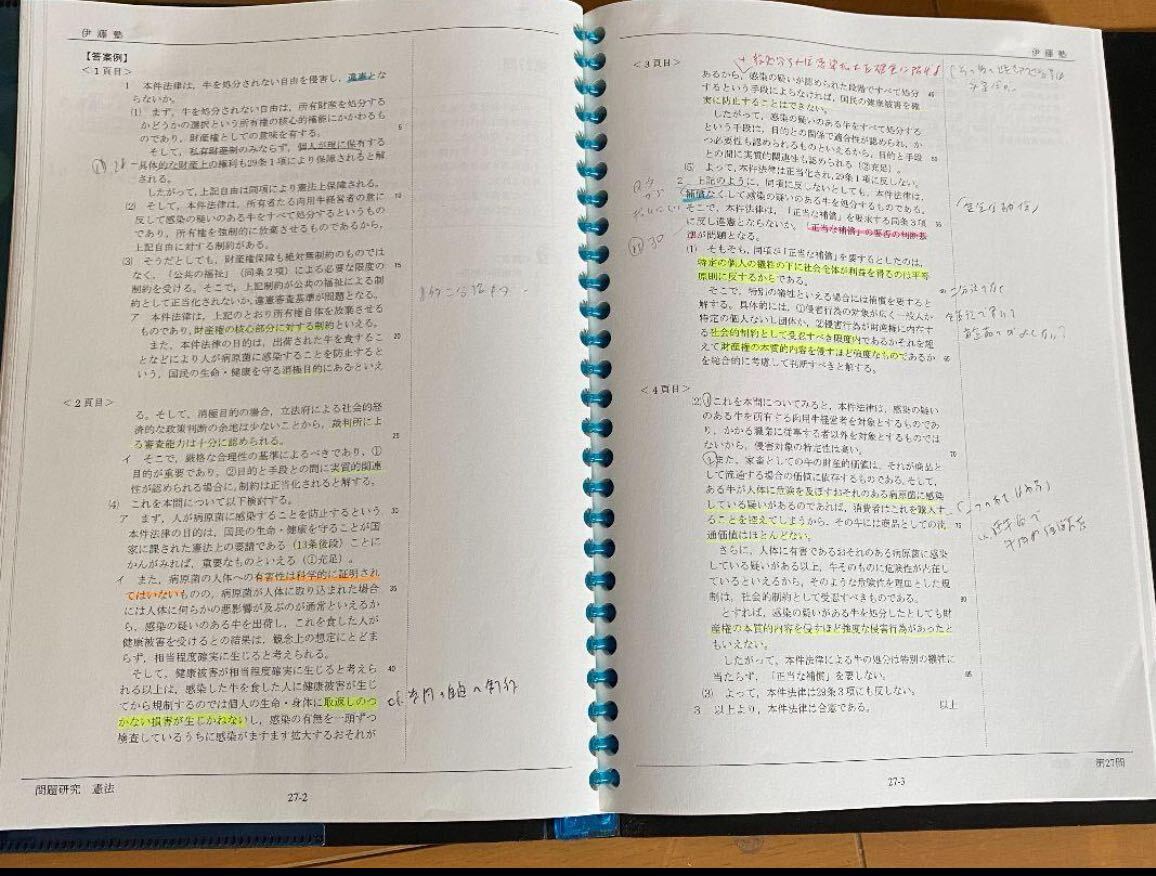 伊藤塾
【答案例】
＜1頁目＞
1　本件法律は，牛を処分されない自由を侵害し，違憲とな
らないか。
(1)　まず，牛を処分されない自由は，所有財産を処分する
かどうかの選択という所有権の核心的権能にかかわるも
のであり，財産権としての意味を有する。
5
そして，私有財産制のみならず，個人が現に保有する
具体的な財産上の権利も29条1項により保障されると解
される。
したがって，上記自由は同項により憲法上保障される。
(2)　そして，本件法律は，所有者たる肉用牛経営者の意に
10
反して感染の疑いのある牛をすべて処分するというもの
であり，所有権を強制的に放棄させるものであるから，
上記自由に対する制約がある。
(3)　そうだとしても，財産権保障も絶対無制約のものでは
なく，「公共の福祉」（同条2項）による必要な限度の
15
制約を受ける。そこで，上記制約が公共の福祉による制
約として正当化されないか，違憲審査基準が問題となる。
ア　本件法律は，上記のとおり所有権自体を放棄させる
ものであり，財産権の核心部分に対する制約といえる。
また，本件法律の目的は，出荷された牛を食するこ
20
となどにより人が病原菌に感染することを防止すると
いう，国民の生命・健康を守る消極目的にあるといえ
＜2頁目＞
る。そして，消極目的の場合，立法府による社会的経
済的な政策判断の余地は少ないことから，裁判所によ
25
る審査能力は十分に認められる。
イ　そこで，厳格な合理性の基準によるべきであり，①
目的が重要であり，②目的と手段との間に実質的関連
性が認められる場合に，制約は正当化されると解する。
(4)　これを本問について以下検討する。
ア　まず，人が病原菌に感染することを防止するという
30
本件法律の目的は，国民の生命・健康を守ることが国
家に課された憲法上の要請である（13条後段）ことに
かんがみれば，重要なものといえる（①充足）。
イ　また，病原菌の人体への有害性は科学的に証明され
てはいないものの，病原菌が人体に取り込まれた場合
35
には人体に何らかの悪影響が及ぶのが通常といえるか
ら，感染の疑いのある牛を出荷し，これを食した人が
健康被害を受けるとの結果は，観念上の想定にとどま
らず，相当程度確実に生じると考えられる。
そして，健康被害が相当程度確実に生じると考えら
40
れる以上は，感染した牛を食した人に健康被害が生じ
てから規制するのでは個人の生命・身体に取返しのつ
かない損害が生じかねないし，感染の有無を一頭ずつ
検査しているうちに感染がますます拡大するおそれが
問題研究　憲法
27-2
伊藤塾
＜3頁目＞
あるから，感染の疑いが認められた段階ですべて処分
45
するという手段によらなければ，国民の健康被害を確
実に防止することはできない。
したがって，感染の疑いのある牛をすべて処分する
という手段に，目的との関係で適合性が認められ，か
つ必要性も認められるものといえるから，目的と手段
50
との間に実質的関連性も認められる（②充足）。
(5)　よって，本件法律は正当化され，29条1項に反しない。
2　上記のように，同項に反しないとしても，本件法律は，
補償なくして感染の疑いのある牛を処分するものである。
そこで，本件法律は，「正当な補償」を要求する同条3項
55
に反し違憲とならないか。「正当な補償」の要否の判断基
準が問題となる。
(1)　そもそも，同項が「正当な補償」を要するとしたのは，
特定の個人の犠牲の下に社会全体が利益を得るのは平等
原則に反するからである。
そこで，特別の犠牲といえる場合には補償を要すると
解する。具体的には，①侵害行為の対象が広く一般人か
特定の個人ないし団体か，②侵害行為が財産権に内在す
る社会的制約として受忍すべき限度内であるかそれを超
えて財産権の本質的内容を侵すほど強度なものであるか
65
を総合的に考慮して判断すべきと解する。
＜4頁目＞
(2)①これを本問についてみると，本件法律は，感染の疑い
のある牛を所有する肉用牛経営者を対象とするものであ
り，かかる職業に従事する者以外を対象とするものでは
ないから，侵害対象の特定性は高い。
70
②また，家畜としての牛の財産的価値は，それが商品と
して流通する場合の価値に依存するものである。そして，
ある牛が人体に危険を及ぼすおそれのある病原菌に感染
している疑いがあるのであれば，消費者はこれを購入す
ることを控えてしまうから，その牛には商品としての流
75
通価値はほとんどない。
さらに，人体に有害であるおそれのある病原菌に感染
している疑いがある以上，牛そのものに危険性が存在し
ているといえるから，そのような危険性を理由とした規
制は，社会的制約として受忍すべきものである。
80
とすれば，感染の疑いがある牛を処分したとしても財
産権の本質的内容を侵すほど強度な侵害行為があったと
もいえない。
したがって，本件法律による牛の処分は特別の犠牲に
当たらず，「正当な補償」を要しない。
85
(3)　よって，本件法律は29条3項にも反しない。
3　以上より，本件法律は合憲である。
以上
第27問
27-3